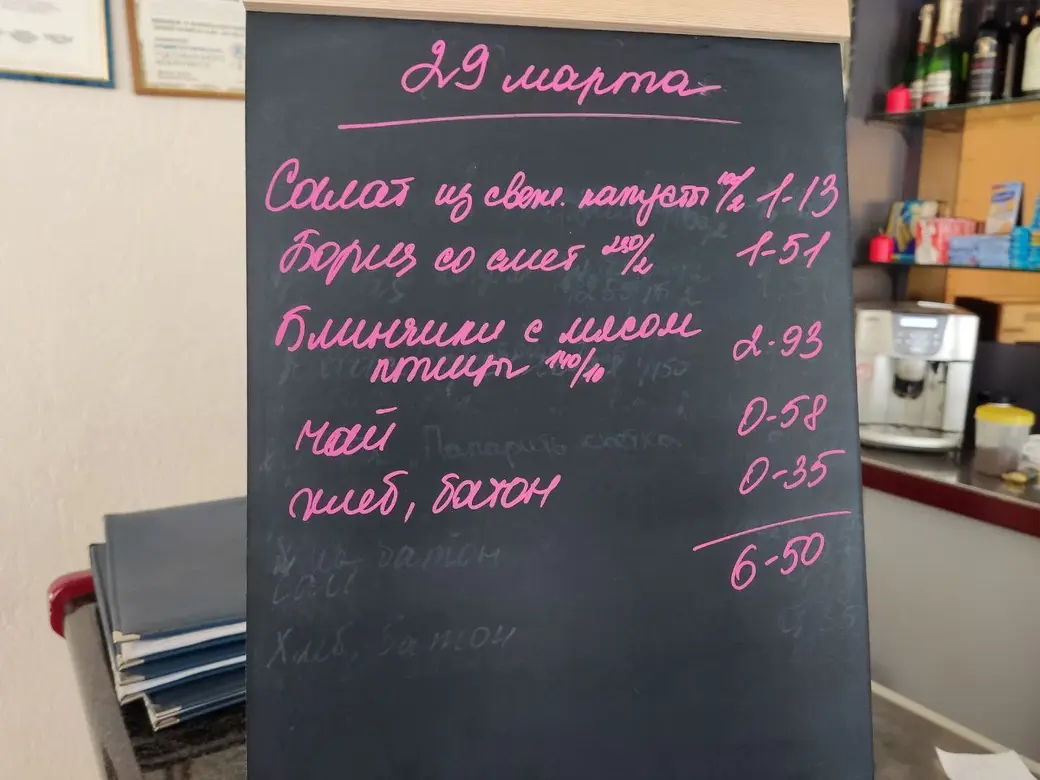 29 марта
Салат из свеж. капусты 100/2 1-13
Борщ со смет 250/2 1-51
Блинчики с мясом
птицы 140/10 2-93
чай 0-58
хлеб, батон 0-35
6-50
Хлеб, батон